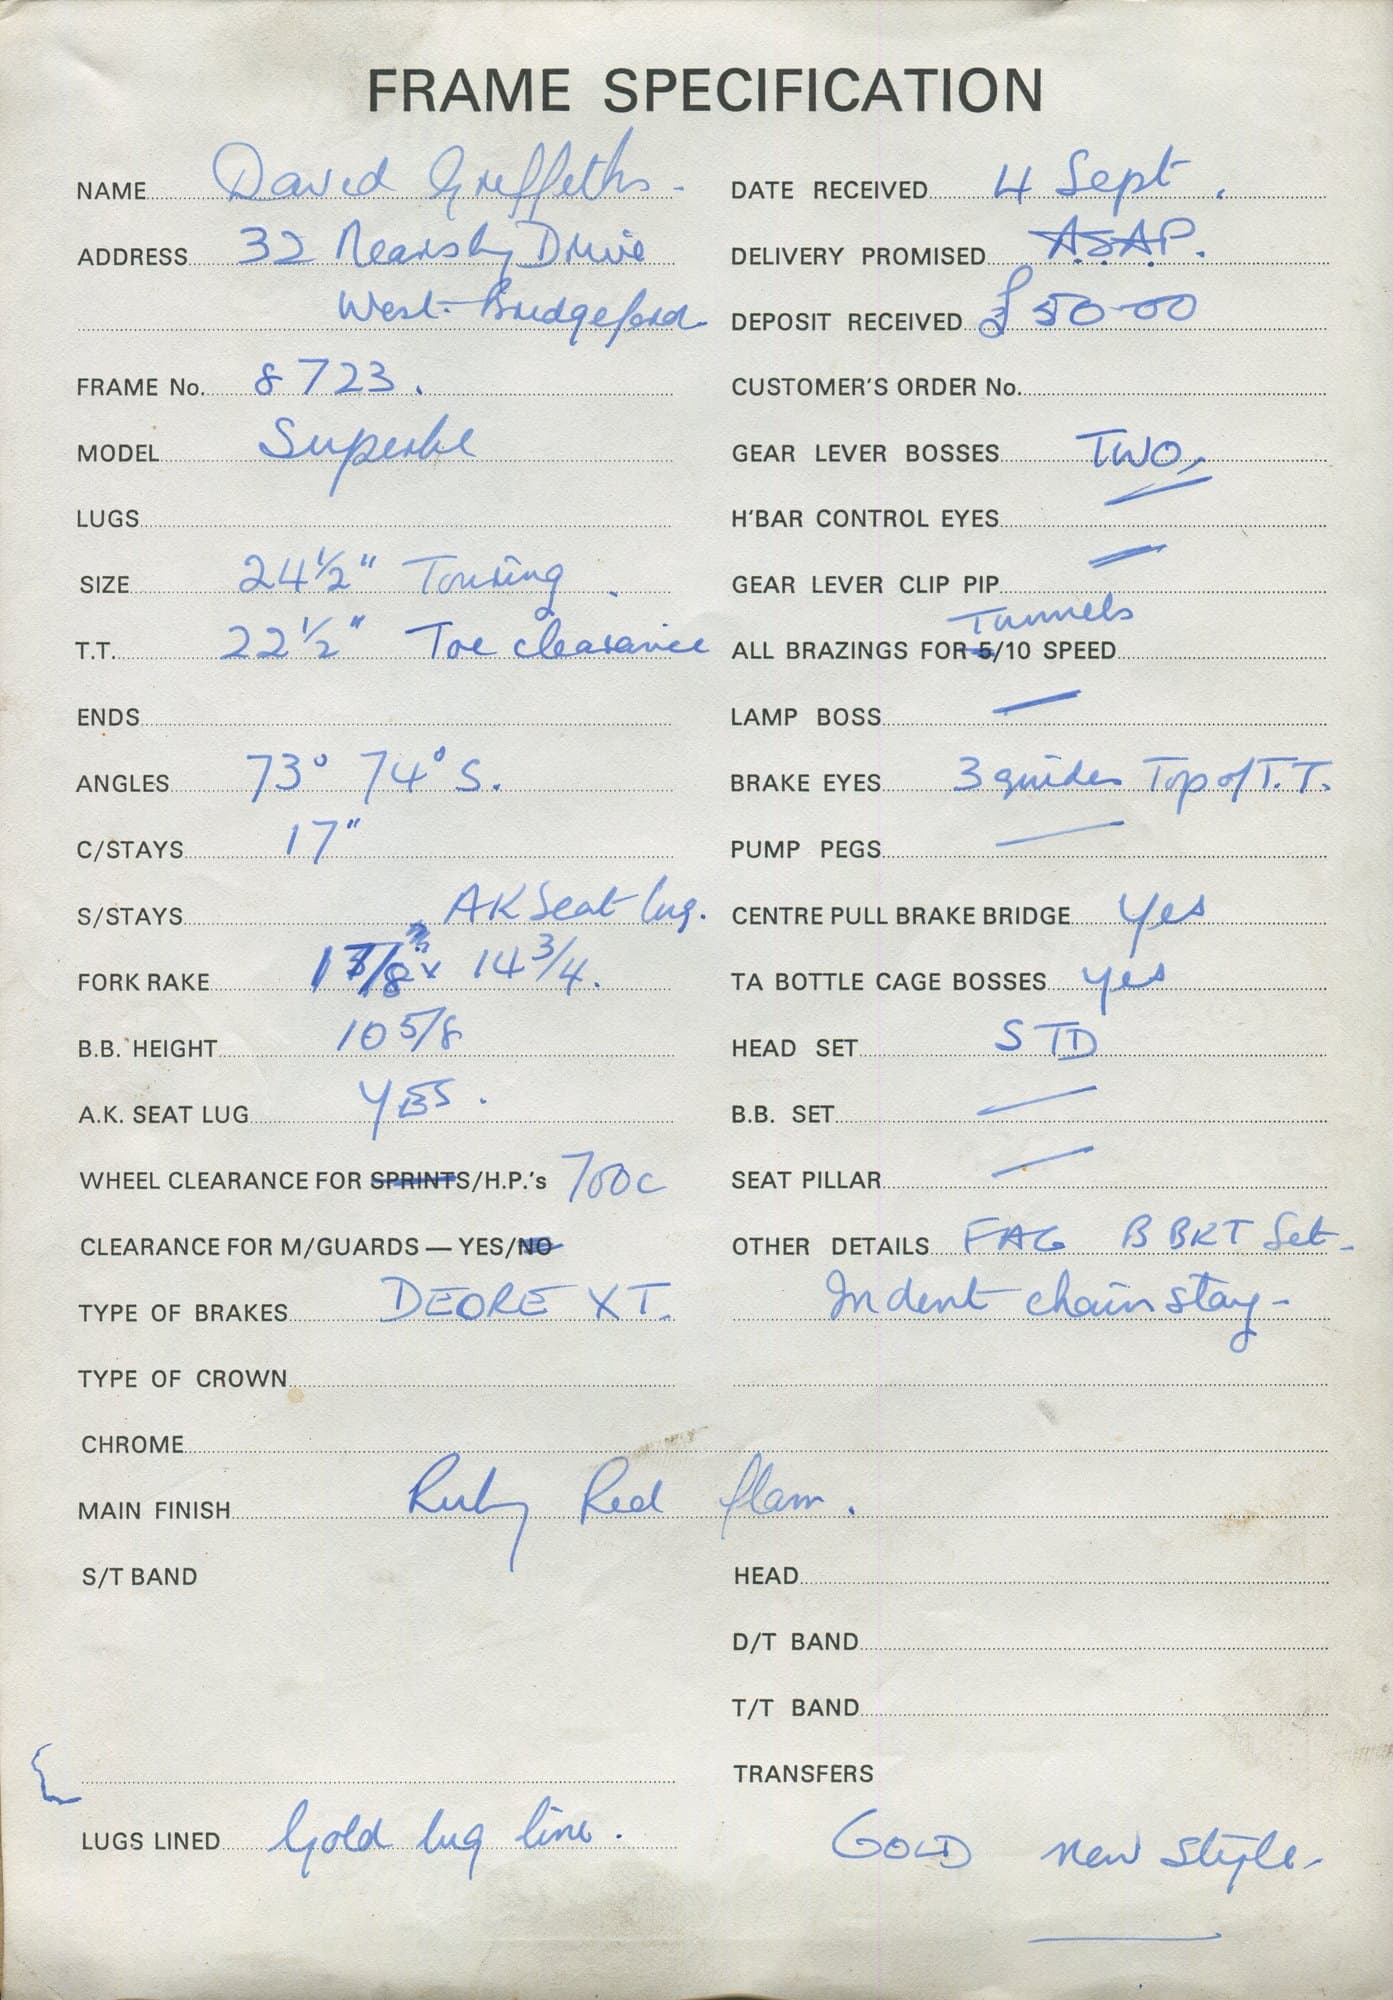 FRAME SPECIFICATION
NAME David Griffeths.
DATE RECEIVED 4 Sept.
ADDRESS 32 Nearsby Drive
DELIVERY PROMISED A.S.A.P.
West-Bridgeford
DEPOSIT RECEIVED £50-00
FRAME No. 8723.
CUSTOMER'S ORDER No.
MODEL Superbe
GEAR LEVER BOSSES TWO
LUGS
H'BAR CONTROL EYES
SIZE 24½" Touring.
GEAR LEVER CLIP PIP
Tunnels
T.T. 22½" Toe clearance
ALL BRAZINGS FOR 5/10 SPEED
ENDS
LAMP BOSS —
ANGLES 73° 74° S.
BRAKE EYES 3 guides Top of T.T.
C/STAYS 17"
PUMP PEGS —
S/STAYS AK Seat lug.
CENTRE PULL BRAKE BRIDGE Yes
FORK RAKE 1 7/8" x 14 3/4.
TA BOTTLE CAGE BOSSES yes
B.B. HEIGHT 10 5/8
HEAD SET STD
A.K. SEAT LUG YES.
B.B. SET —
WHEEL CLEARANCE FOR SPRINTS/H.P.'s 700c
SEAT PILLAR —
CLEARANCE FOR M/GUARDS — YES/NO
OTHER DETAILS FAG B BKT Set-
TYPE OF BRAKES DEORE XT.
Indent chainstay-
TYPE OF CROWN
CHROME
MAIN FINISH Ruby Red flam.
S/T BAND
HEAD
D/T BAND
T/T BAND
TRANSFERS
LUGS LINED Gold lug line.
GOLD new style-